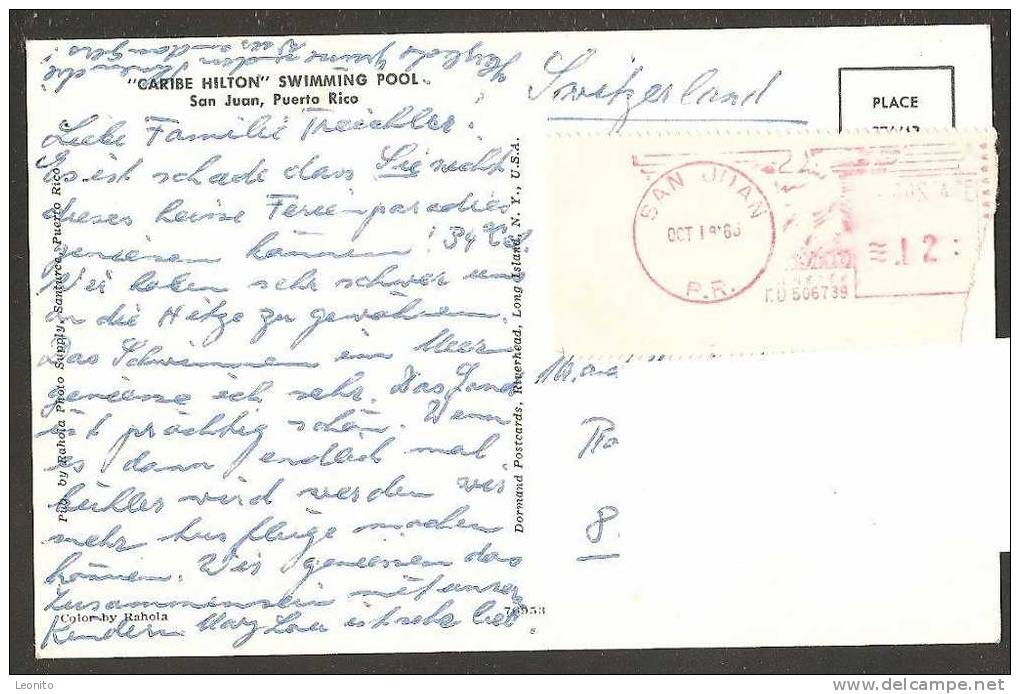 "CARIBE HILTON" SWIMMING POOL
San Juan, Puerto Rico
Liebe Familie Treichler.
Es ist schade dass Sie nicht
dieses heisse Ferienparadies
geniessen können! 34°
Wir haben sehr schwer uns
an die Hitze zu gewöhnen.
Das Schwimmen im Meer
geniesse ich sehr. Das Land
ist prächtig schön. Wenn
es dann endlich mal
kühler wird werden wir
mehr Ausflüge machen
können. Wir geniessen das
Zusammensein mit unsern
Kindern. Mary Lou ist sehr lieb
Herzliche Grüsse
Pub. by Rahola Photo Supply, Santurce, Puerto Rico
Color by Rahola
76953
Dormand Postcards, Riverhead, Long Island, N. Y., U.S.A.
Switzerland
PLACE
SAN JUAN
OCT 19'6
P.R.
506739
.12
8.
Leonito